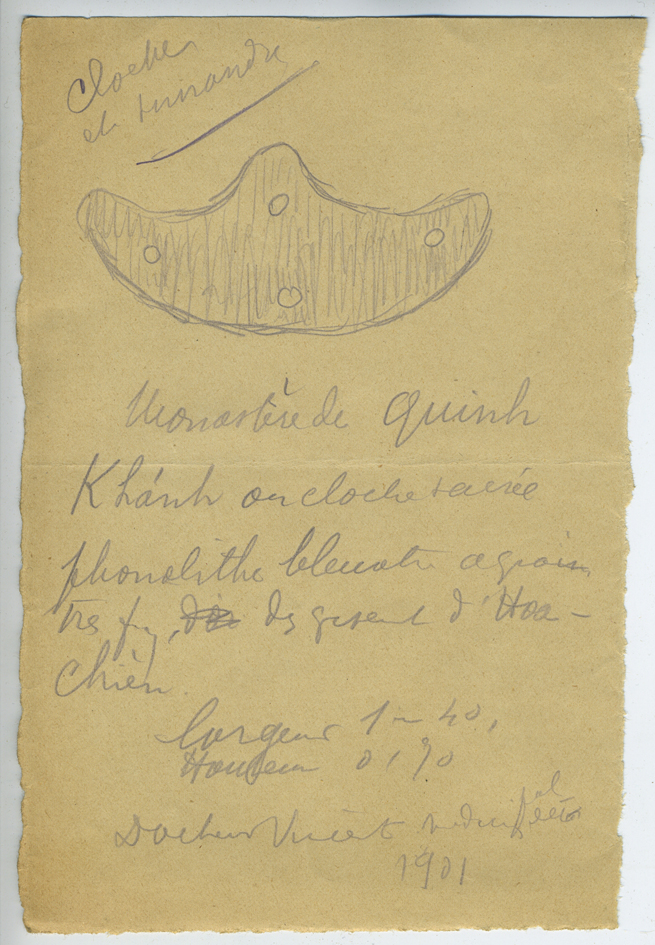 Cloche
de
Monastère de Quinh
Khánh ou cloche sacrée
phonolithe bleuatre a grain
très fin, des gisent d'Hoa-
Chièn.
Largeur 1m 40,
Hauteur 0,70
Docteur Vincent
1901